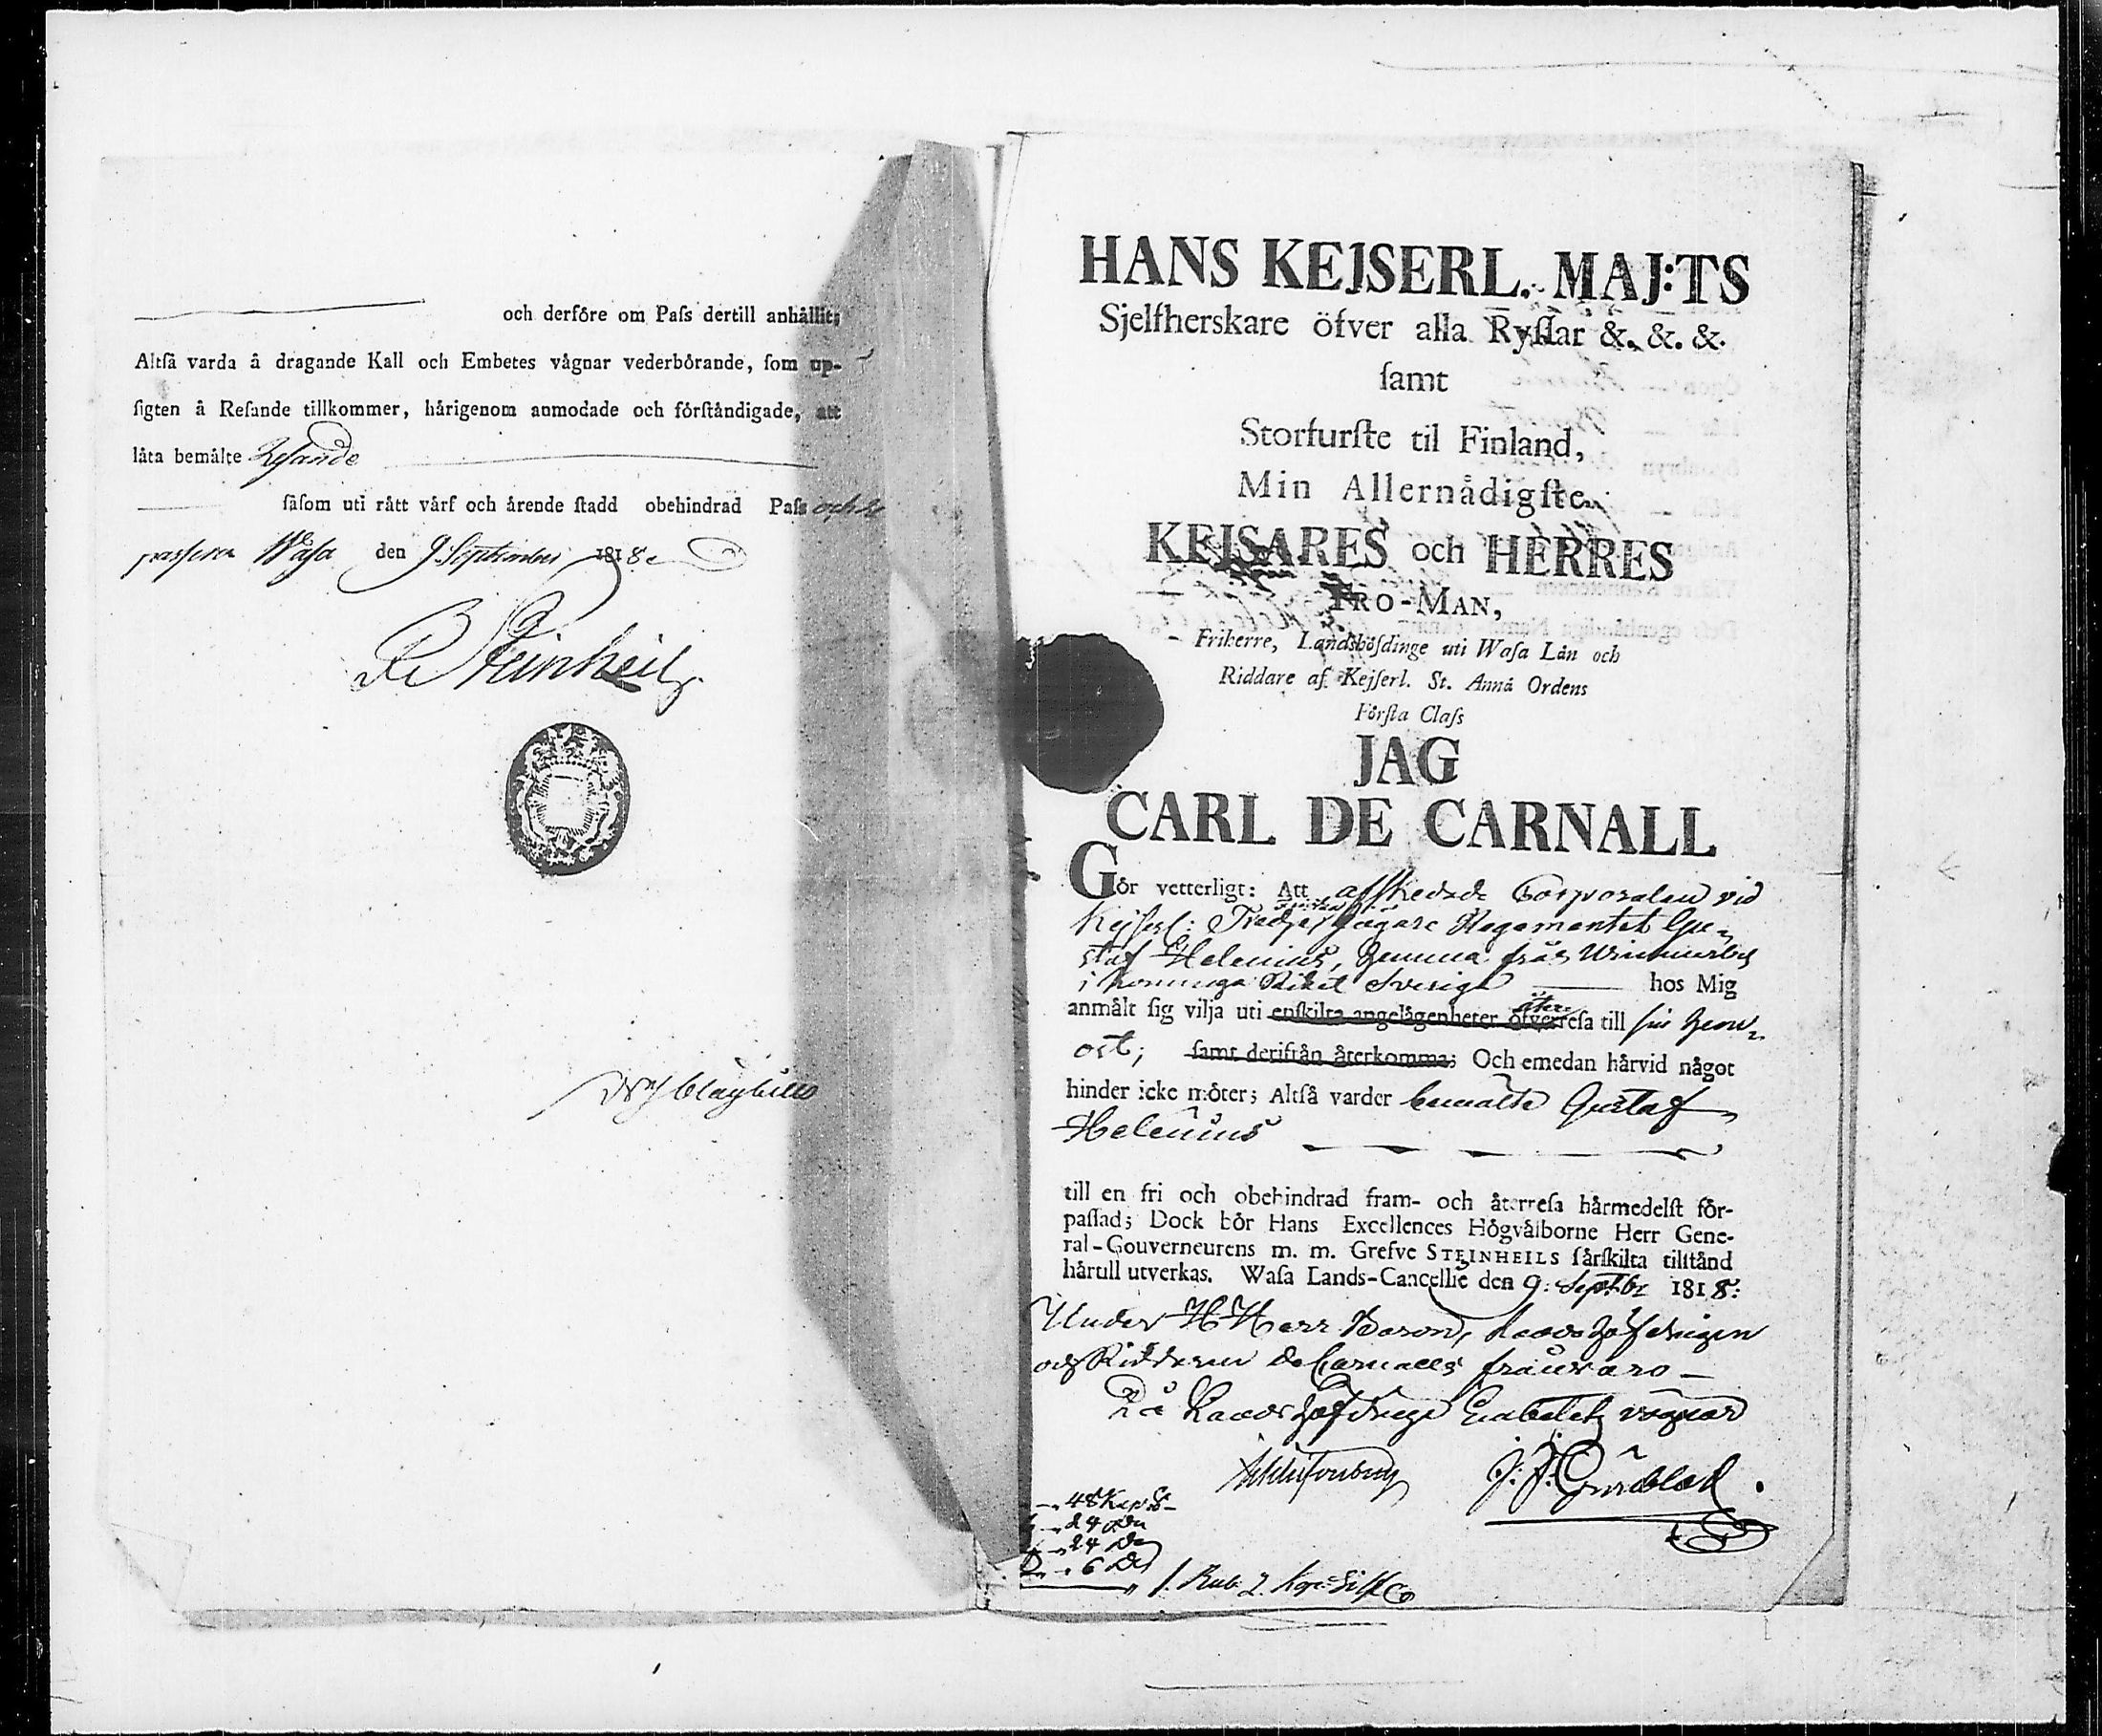 och derföre om Paſs dertill anhållit;
Altſå varda å dragande Kall och Embetes vågnar vederbörande, ſom up-
ſigten å Reſande tillkommer, hårigenom anmodade och förſtåndigade, att
låta bemålte Resande
ſåſom uti rått vårf och årende ſtadd obehindrad Paſs och re
passera Wasa den 9 September 1818
Steinheil
HANS KEJSERL. MAJ:TS
Sjelfherskare öfver alla Ryſſar &. &. &.
ſamt
Storfurſte til Finland,
Min Allernådigſte
KEJSARES och HERRES
TRO-MAN,
Friherre, Landshöfdinge uti Waſa Lån och
Riddare af Kejſerl. St. Annå Ordens
Förſta Claſs
JAG
CARL DE CARNALL
Gör vetterligt: Att afskedade Corporalen vid
Kejserl: Tredje Jägare Regementet Gu-
staf Helenius, hemma från
i Konunga Riket Sverige hos Mig
anmålt ſig vilja uti enſkilta angelågenheter öfver åter reſa till sin hem-
ort; ſamt derifrån återkomma; Och emedan hårvid något
hinder icke möter; Altſå varder bemälte Gustaf
Helenius
till en fri och obehindrad fram- och återreſa hårmedelſt för-
paſſad; Dock bör Hans Excellences Högvålborne Herr Gene-
ral-Gouverneurens m. m. Grefve STEINHEILS ſårſkilta tilſtånd
hårtill utverkas. Waſa Lands-Cancellie den 9: Septbr 1818:
Under H Herr Baron, Landshöfdingen
och Riddaren de Carnalls frånvaro
På Landshöfdinge Embetets vägnar
48 Kop S
24 Do
24 Do
6 Do
1. Rub. 2. Kop: Silf